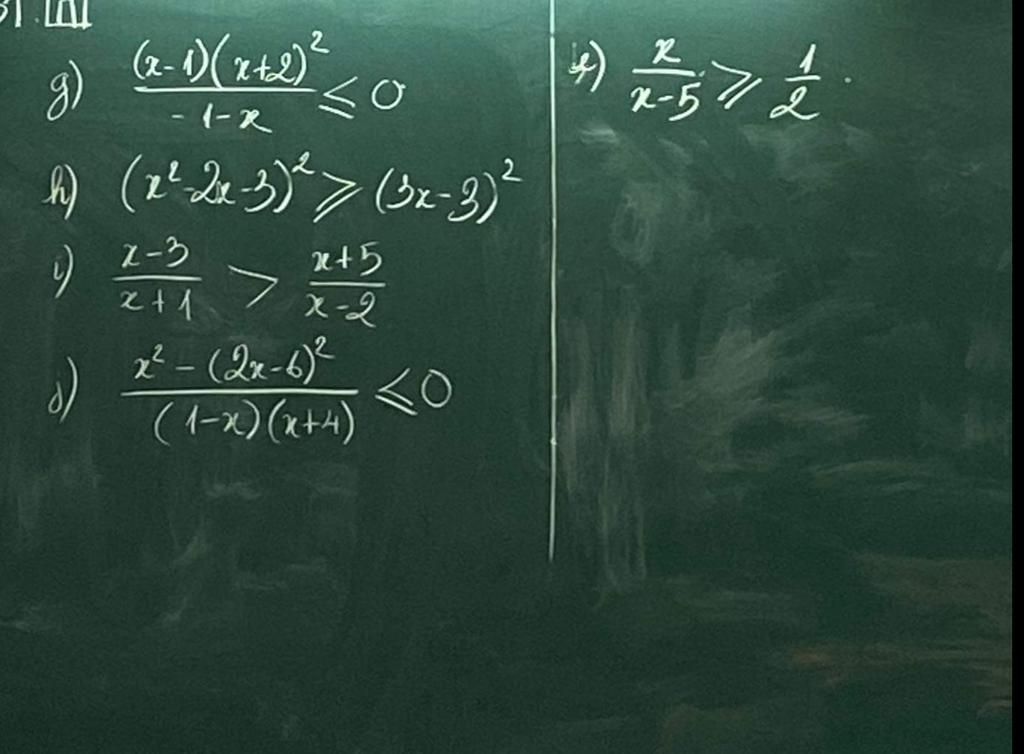 g) \frac{(x-1)(x+2)^2}{-1-x} ≤ 0
h) (x^2-2x-3)^2 ≥ (3x-3)^2
i) \frac{x-3}{x+1} > \frac{x+5}{x-2}
j) \frac{x^2-(2x-6)^2}{(1-x)(x+4)} ≤ 0
\frac{x}{x-5} ≥ \frac{1}{2}.